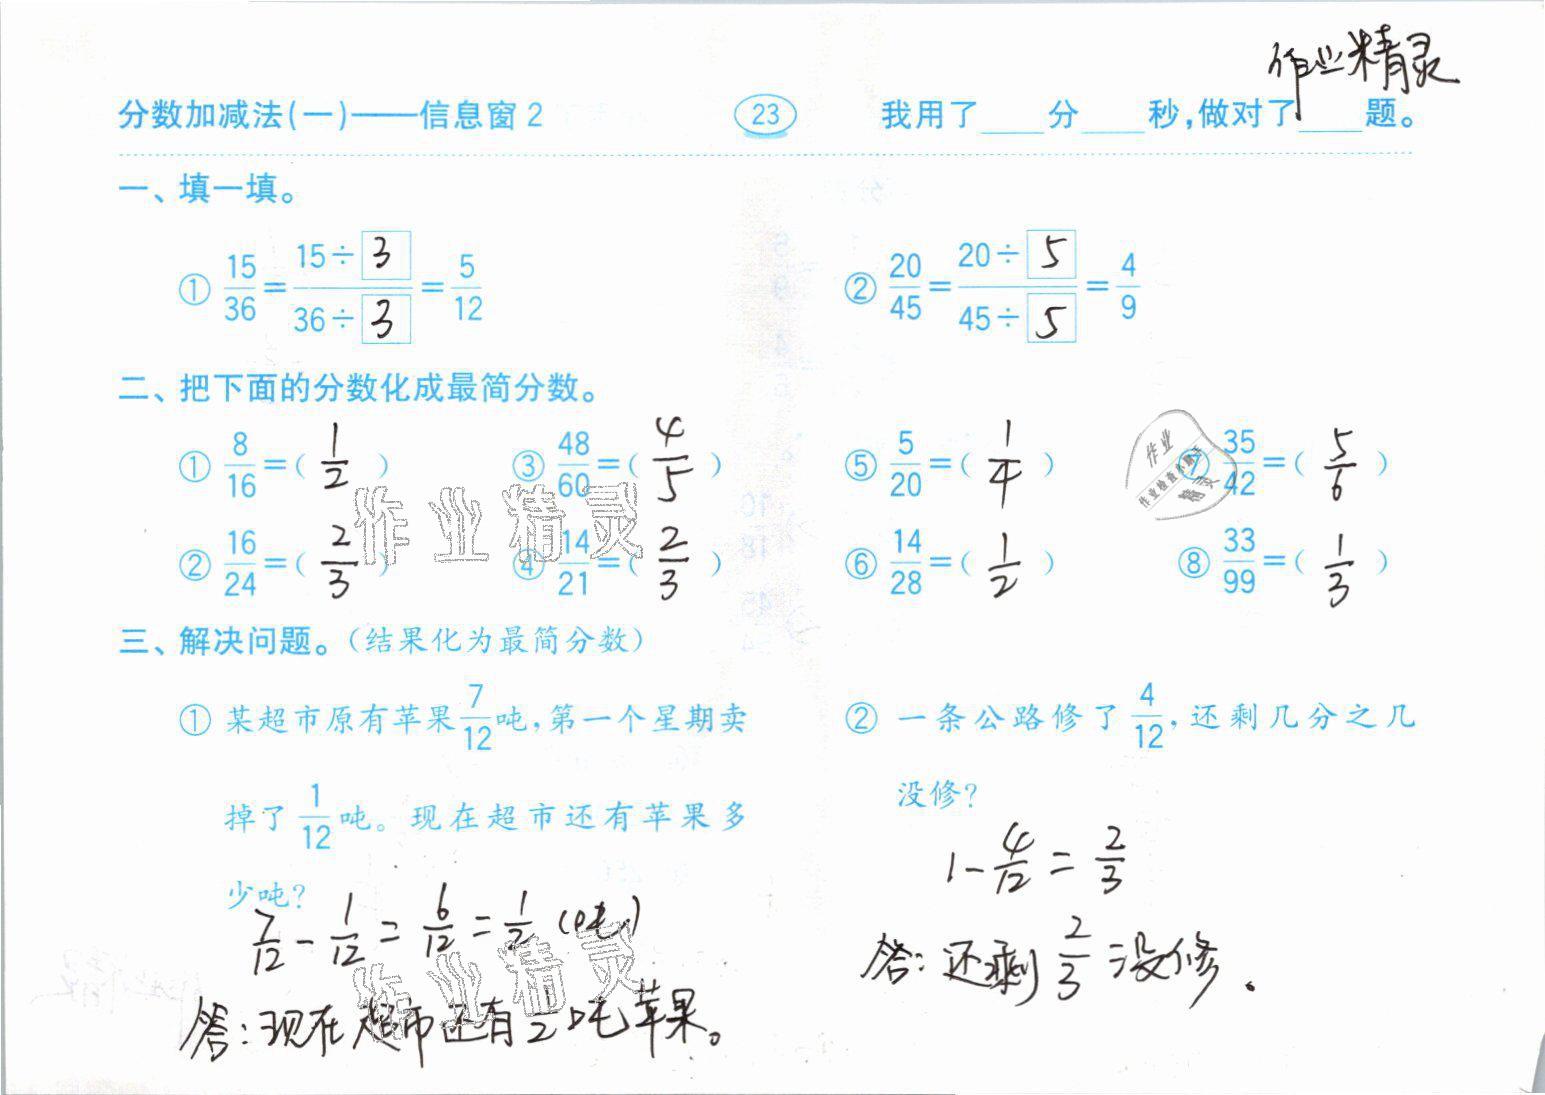 作业精灵
分数加减法(一)——信息窗2 23 我用了____分____秒,做对了____题。
一、填一填。
① 15/36=(15÷3)/(36÷3)=5/12 ② 20/45=(20÷5)/(45÷5)=4/9
二、把下面的分数化成最简分数。
① 8/16=(1/2) ③ 48/60=(4/5) ⑤ 5/20=(1/4) ⑦ 35/42=(5/6)
② 16/24=(2/3) ④ 14/21=(2/3) ⑥ 14/28=(1/2) ⑧ 33/99=(1/3)
作业精灵
三、解决问题。(结果化为最简分数)
① 某超市原有苹果7/12吨,第一个星期卖
掉了1/12吨。现在超市还有苹果多
少吨?
7/12-1/12=6/12=1/2(吨)
答:现在超市还有1/2吨苹果。
② 一条公路修了4/12,还剩几分之几
没修?
1-4/12=2/3
答:还剩2/3没修。
作业精灵